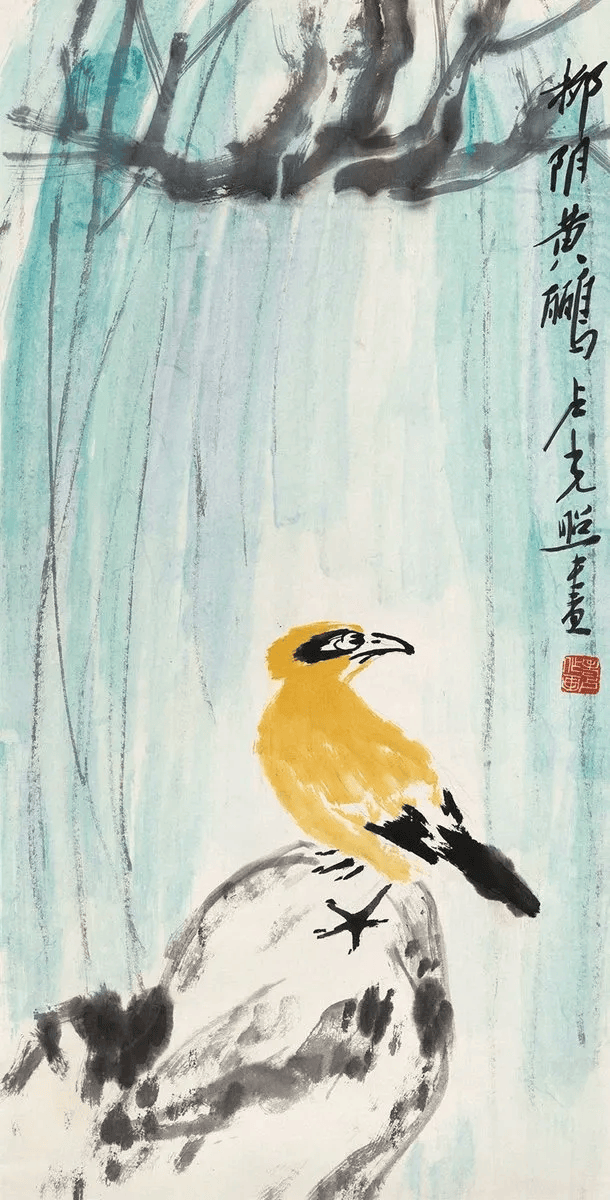 柳阴黄鹂卢光照画